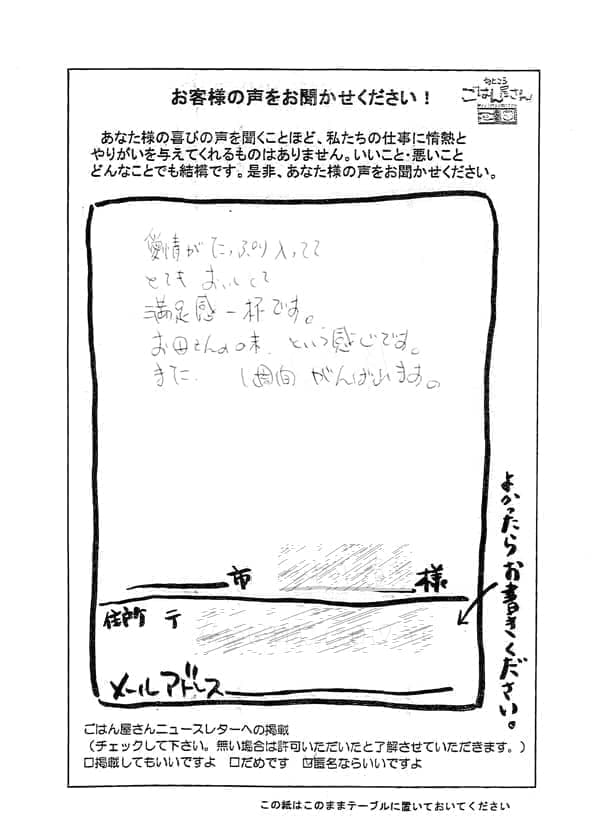 お客様の声をお聞かせください！
なっとこう
ごはん屋さん
あなた様の喜びの声を聞くことほど、私たちの仕事に情熱と
やりがいを与えてくれるものはありません。いいこと・悪いこと
どんなことでも結構です。是非、あなた様の声をお聞かせください。
愛情がたっぷり入ってて
とても おいしくて
満足感一杯です。
お母さんの味、という感じです。
また、1週間 がんばります。
よかったらお書きください。
市 様
住所 〒
メールアドレス
ごはん屋さんニュースレターへの掲載
（チェックして下さい。無い場合は許可いただいたと了解させていただきます。）
□掲載してもいいですよ □だめです ☑匿名ならいいですよ
この紙はこのままテーブルに置いておいてください